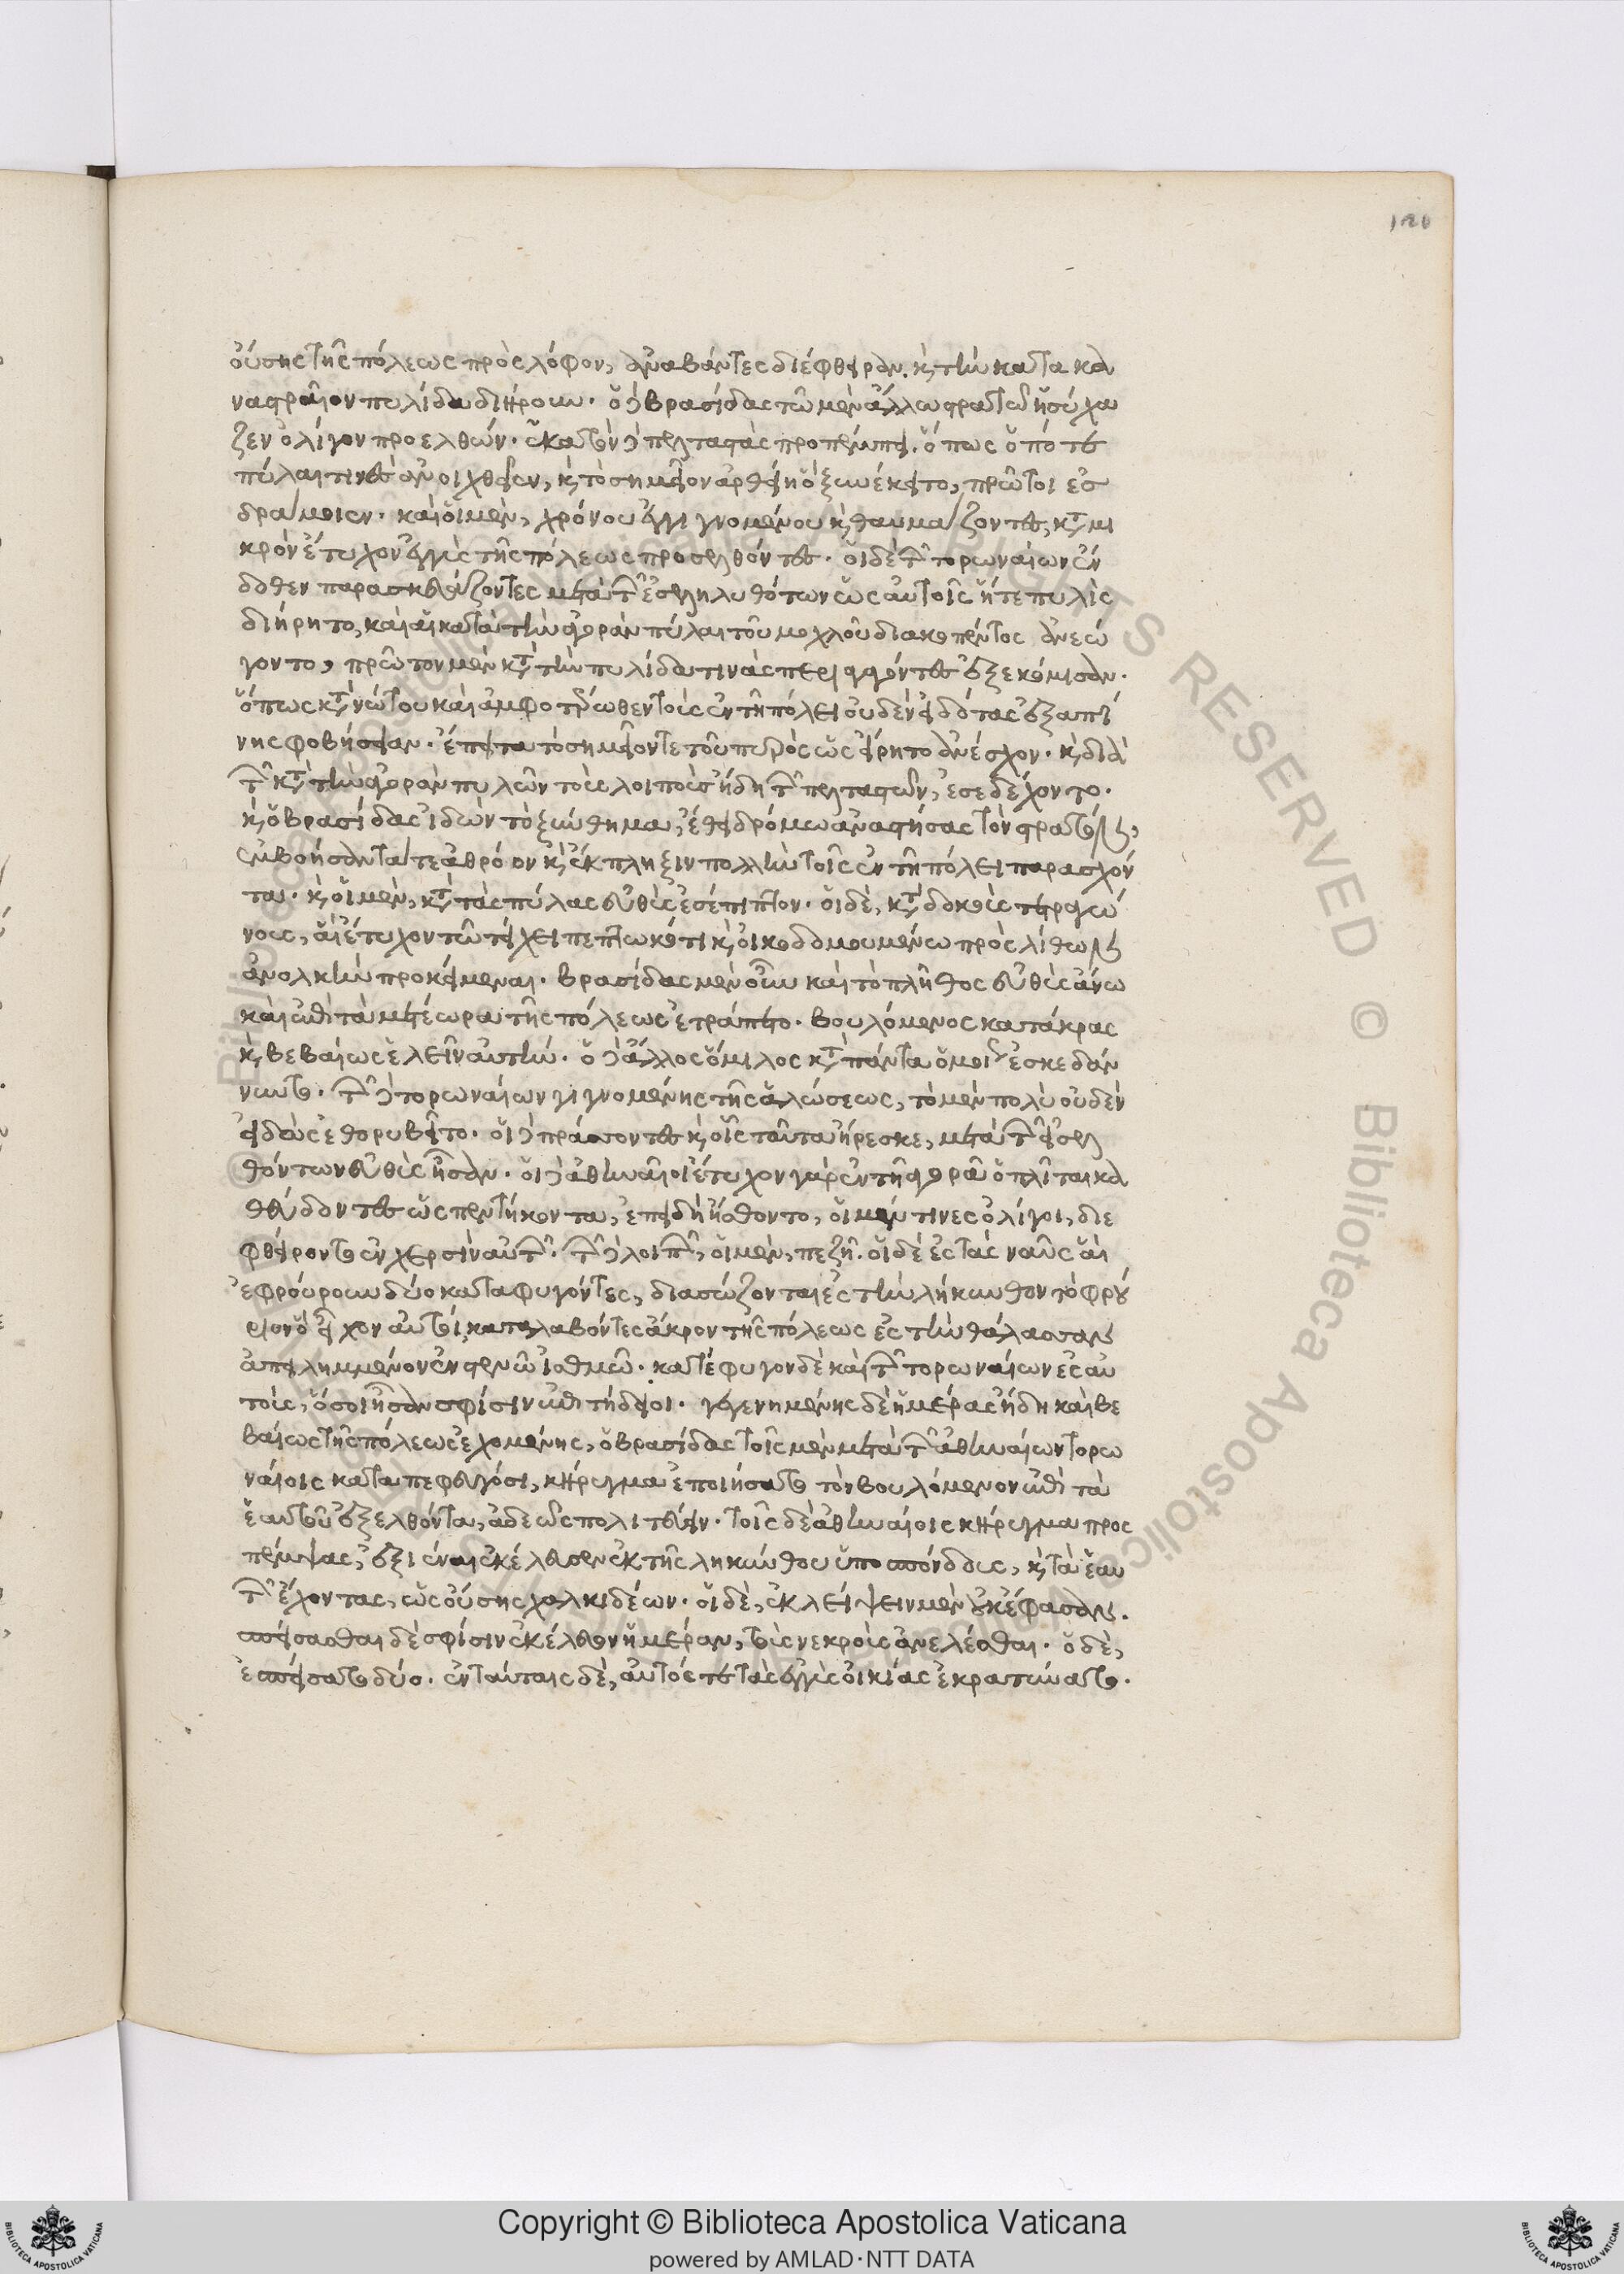 οὔσης τῆς πόλεως πρὸς λόφον, ἀναβάντες διέφθειραν. κ τὴν κατα κα
ναστραῖον πυλίδα διήρουν. ὁ δὲ βρασίδας τῶ μὲν ἄλλω στρατῶ ἡσύχα
ζεν ὀλίγον προελθών. ἑκατὸν δὲ πελταστὰς προπέμπει. ὅπως ὁπότε
πύλαι τινὲς ἀνοιχθεῖεν, κ τὸ σημεῖον ἀρθείη ὃ ξυνέκειτο, πρῶτοι ἐσ
δράμοιεν. καὶ οἱ μὲν, χρόνου ἐγγιγνομένου κ θαυμάζοντες, κτ μι
κρὸν ἔτυχον ἐγγὺς τῆς πόλεως προσελθόντες. οἱ δὲ τῶν τορωναίων ἔν
δοθεν παρασκευάζοντες μετὰ τῶν ἐσεληλυθότων ὡς αὐτοῖς ἥ τε πυλὶς
διήρητο, καὶ αἱ κατὰ τὴν ἀγορὰν πύλαι τοῦ μοχλοῦ διακοπέντος ἀνεώ
γοντο, πρῶτον μὲν κτ τὴν πυλίδα τινὰς περιαγαγόντες ἐξεκόμισαν.
ὅπως κτ νώτου καὶ ἀμφοτέρωθεν τοὺς ἐν τῆ πόλει οὐδὲν εἰδότας ἐξαπί
νης φοβήσειαν. ἔπειτα τὸ σημεῖόν τε τοῦ πυρὸς ὡς εἴρητο ἀνέσχον. κ διὰ
τῶν κτ τὴν ἀγορὰν πυλῶν τοὺς λοιποὺς ἤδη τῶν πελταστῶν, ἐσεδέχοντο.
κ ὁ βρασίδας ἰδὼν τὸ ξύνθημα, ἔθει δρόμω ἀναστήσας τὸν στρατόν,
ἐμβοήσαντά τε ἀθρόον κ ἔκπληξιν πολλὴν τοῖς ἐν τῆ πόλει παρασχόν
τα. κ οἱ μὲν, κτ τὰς πύλας εὐθὺς ἐσέπιπτον. οἱ δὲ, κτ δοκοὺς τετραγώ
νους, αἳ ἔτυχον τῶ τείχει πεπτωκότι κ οἰκοδομουμένω πρὸς λίθων
ἀνολκὴν προκείμεναι. βρασίδας μὲν οὖν καὶ τὸ πλῆθος εὐθὺς ἄνω
καὶ ἐπὶ τὰ μετέωρα τῆς πόλεως ἐτράπετο. βουλόμενος κατάκρας
κ βεβαίως ἑλεῖν αὐτήν. ὁ δὲ ἄλλος ὅμιλος κτ πάντα ὁμοίως ἐσκεδάν
νυντο. τῶν δὲ τορωναίων γιγνομένης τῆς ἁλώσεως, τὸ μὲν πολὺ οὐδὲν
εἰδὼς ἐθορυβεῖτο. οἱ δὲ πράσσοντες κ οἷς ταῦτα ἤρεσκε, μετὰ τῶν εἰσελ
θόντων εὐθὺς ἦσαν. οἱ δὲ ἀθηναῖοι ἔτυχον γὰρ ἐν τῆ ἀγορᾶ ὁπλῖται κα
θεύδοντες ὡς πεντήκοντα, ἐπειδὴ ἤσθοντο, οἱ μέν τινες ὀλίγοι, διε
φθείροντο ἐν χερσὶν αὐτῶν. τῶν δὲ λοιπῶν, οἱ μὲν, πεζῆ. οἱ δὲ ἐς τὰς ναῦς αἳ
ἐφρούρουν δύο καταφυγόντες, διασώζονται ἐς τὴν λήκυνθον τὸ φρού
ριον ὃ εἶχον αὐτοὶ καταλαβόντες ἄκρον τῆς πόλεως ἐς τὴν θάλασσαν
ἀπειλημμένον ἐν στενῶ ἰσθμῶ. κατέφυγον δὲ καὶ τῶν τορωναίων ἐς αὐ
τοὺς, ὅσοι ἦσαν σφίσιν ἐπιτήδειοι. γεγενημένης δὲ ἡμέρας ἤδη καὶ βε
βαίως τῆς πόλεως ἐχομένης, ὁ βρασίδας τοῖς μὲν μετὰ τῶν ἀθηναίων τορω
ναίοις καταπεφευγόσι, κήρυγμα ἐποιήσατο τὸν βουλόμενον ἐπὶ τὰ
ἑαυτοῦ ἐξελθόντα, ἀδεῶς πολιτεύειν. τοῖς δὲ ἀθηναίοις κήρυγμα προς
πέμψας, ἐξιέναι ἐκέλευσεν ἐκ τῆς ληκύνθου ὑποσπόνδους, κ τὰ ἑαυ
τῶν ἔχοντας, ὡς οὔσης χαλκιδέων. οἱ δὲ, ἐκλείψειν μὲν οὐκ ἔφασαν.
σπείσασθαι δὲ σφίσιν ἐκέλευον ἡμέραν, τοὺς νεκροὺς ἀνελέσθαι. ὁ δὲ,
ἐσπείσατο δύο. ἐν ταύταις δὲ, αὐτός τε τὰς ἐγγὺς οἰκίας ἐκρατύνατο.